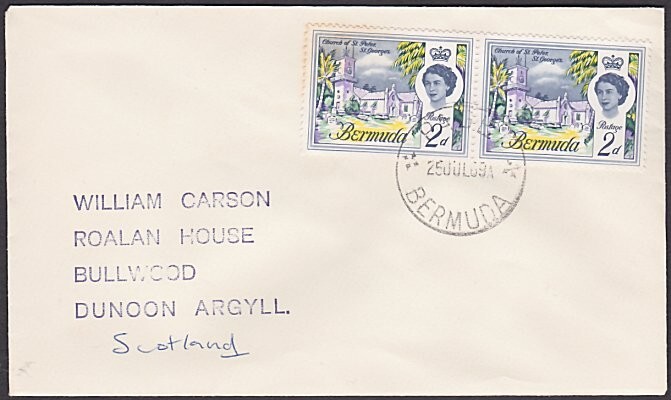 Church of St. Peter, St. Georges
Postage
Bermuda 2d
Church of St. Peter, St. Georges
Postage
Bermuda 2d
25JUL69
BERMUDA
WILLIAM CARSON
ROALAN HOUSE
BULLWOOD
DUNOON ARGYLL.
Scotland